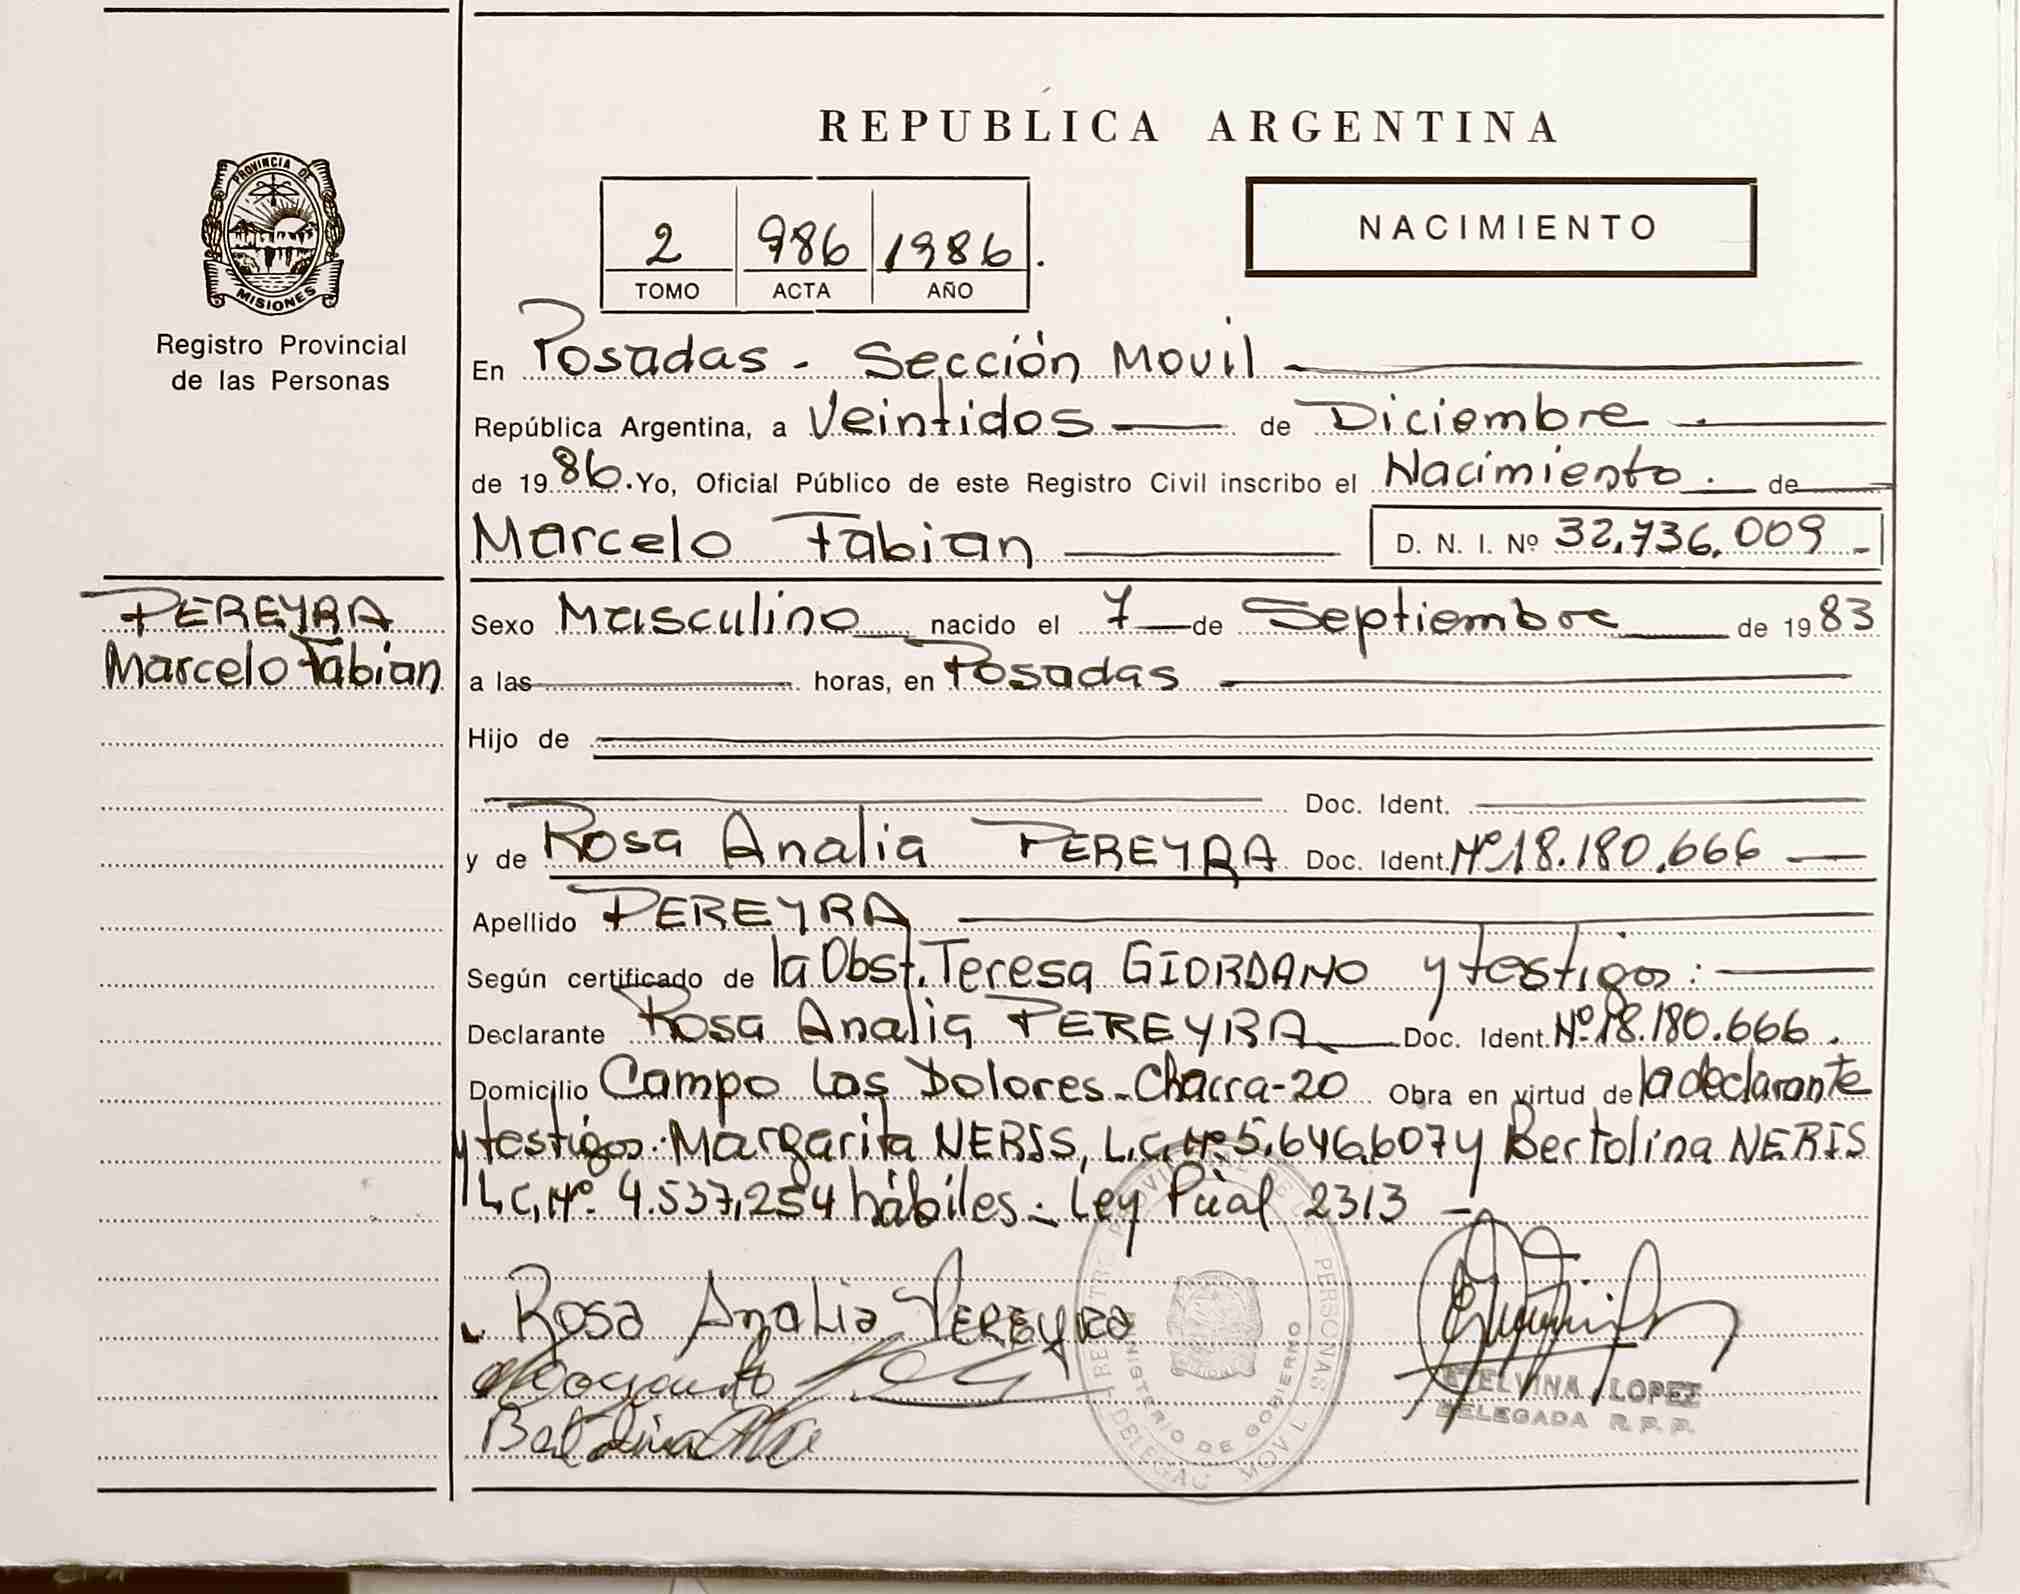 REPUBLICA ARGENTINA
PROVINCIA DE
MISIONES
Registro Provincial
de las Personas
2 986 1986.
TOMO ACTA AÑO
NACIMIENTO
En Posadas - Sección Movil
República Argentina, a Veintidos de Diciembre
de 1986. Yo, Oficial Público de este Registro Civil inscribo el Nacimiento. de
Marcelo Fabian D. N. I. Nº 32,736,009 -
PEREYRA
Marcelo Fabian
Sexo Masculino nacido el 7 de Septiembre de 1983
a las horas, en Posadas
Hijo de
Doc. Ident.
y de Rosa Analia PEREYRA Doc. Ident. Nº 18.180.666
Apellido PEREYRA
Según certificado de la Obst. Teresa GIORDANO y testigos:
Declarante Rosa Analia PEREYRA Doc. Ident. Nº 18.180.666.
Domicilio Campo Las Dolores - Chacra - 20 Obra en virtud de la declarante
y testigos: Margarita NERIS, L.C. Nº 5,646,607 y Bertolina NERIS
L.C, Nº. 4.537,254 hábiles - Ley Pcial 2313 -
Rosa Analia PEREYRA
Bertolina
REGISTRO PROVINCIAL DE LAS PERSONAS
MINISTERIO DE GOBIERNO
MOVIL
ETELVINA LOPEZ
DELEGADA R. P. P.